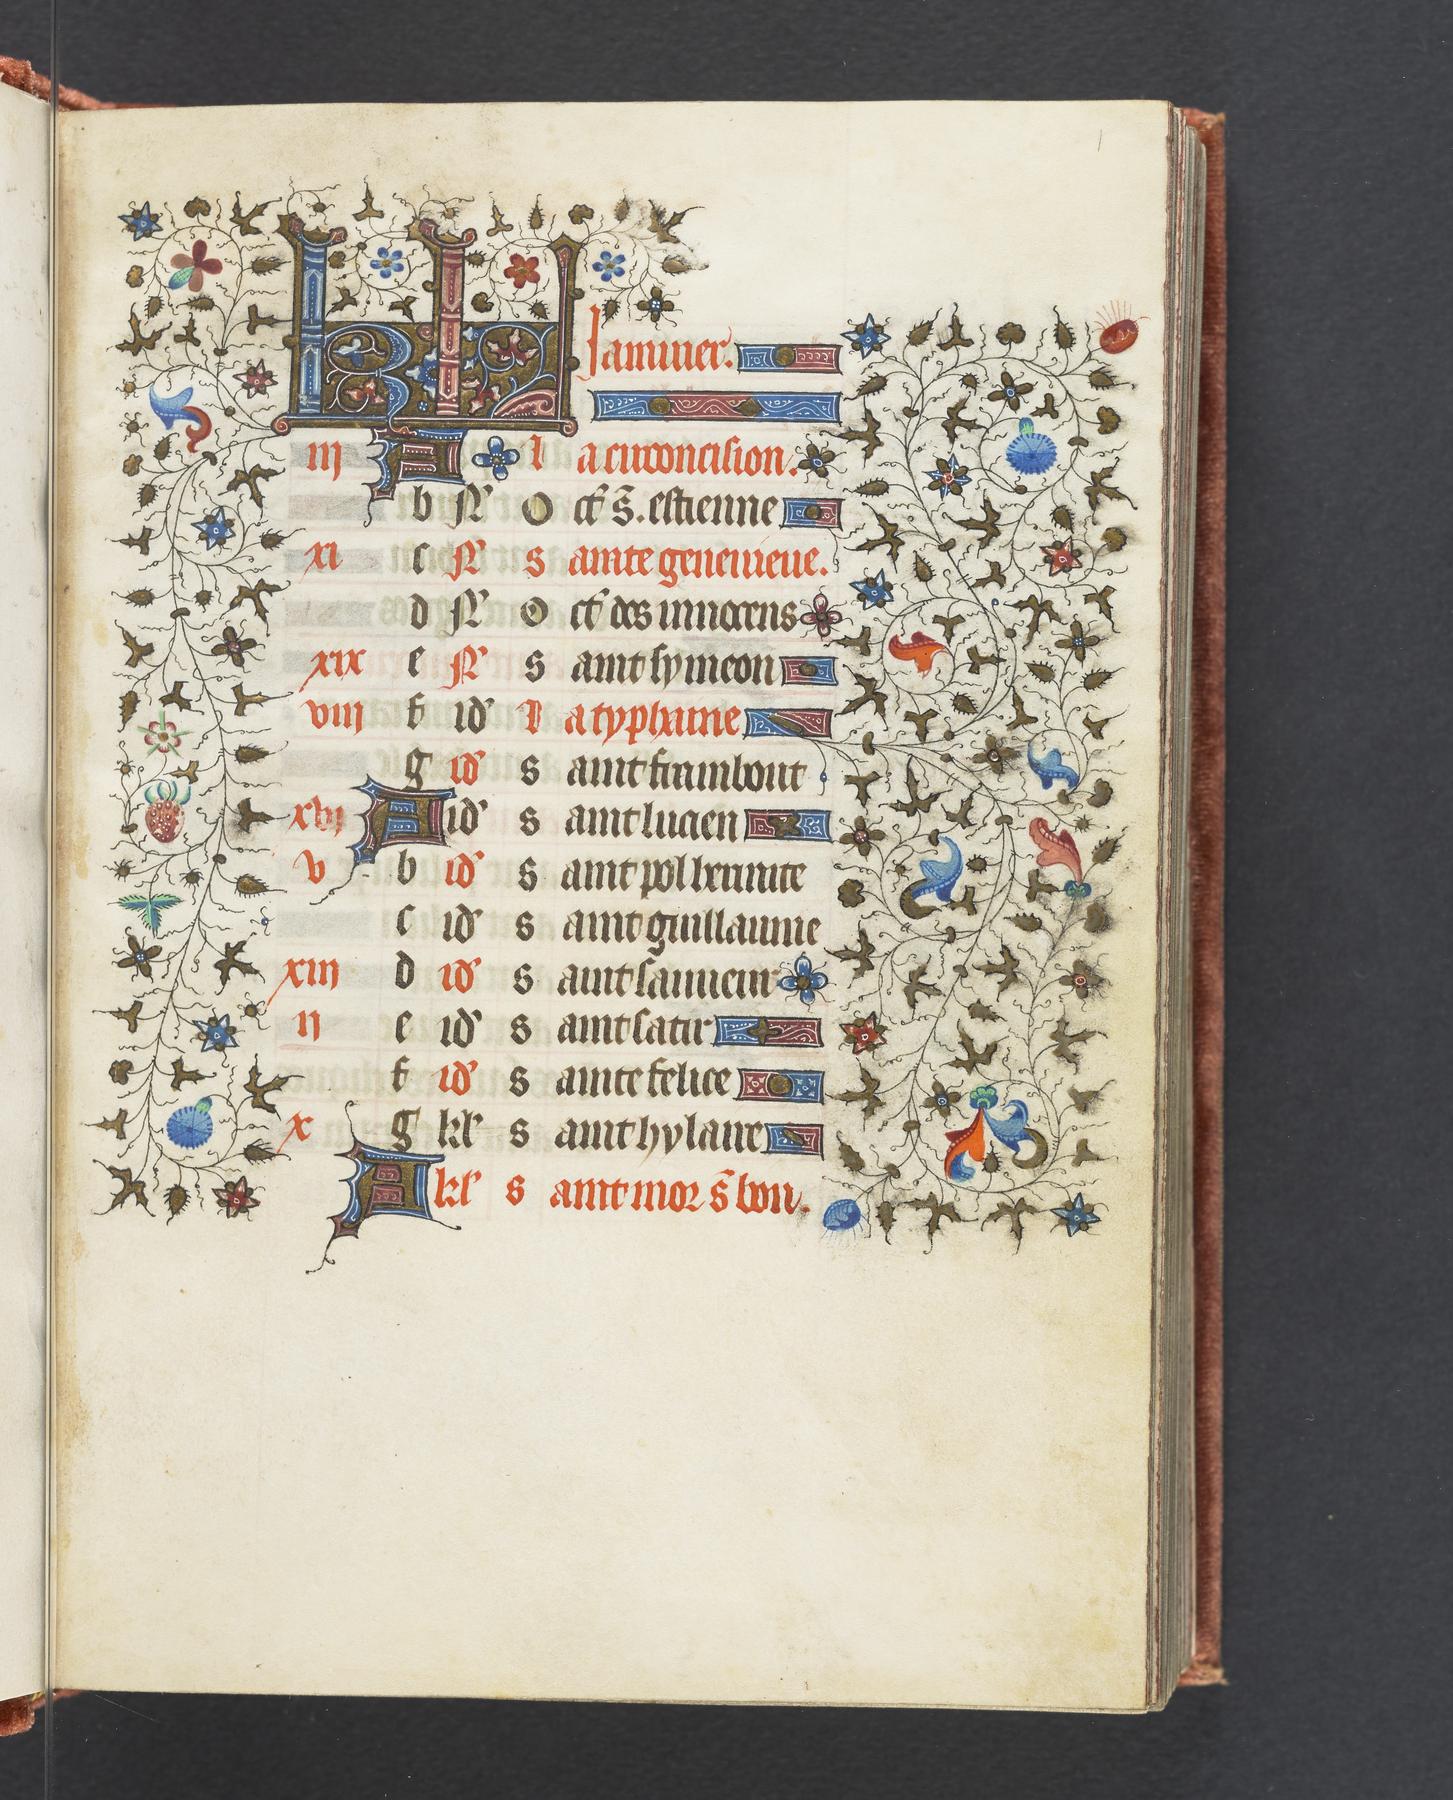 1
KL Januier.
iij A L a circoncision.
b N' O ct' s̃. estienne
xi c N' s ainte geneuieue.
d N' O ct' des innocens
xix e N' s aint symeon
viij f id' L a typhaine
g id' s aint frambout
xvj A id' s aint lucien
v b id' s aint pol hermite
c id' s aint guillaume
xiij d id' s aint sauueur
ij e id' s aint satir
f id' s ainte felice
x g kl' s aint hylaire
A kl' s aint mor s̃ bon.